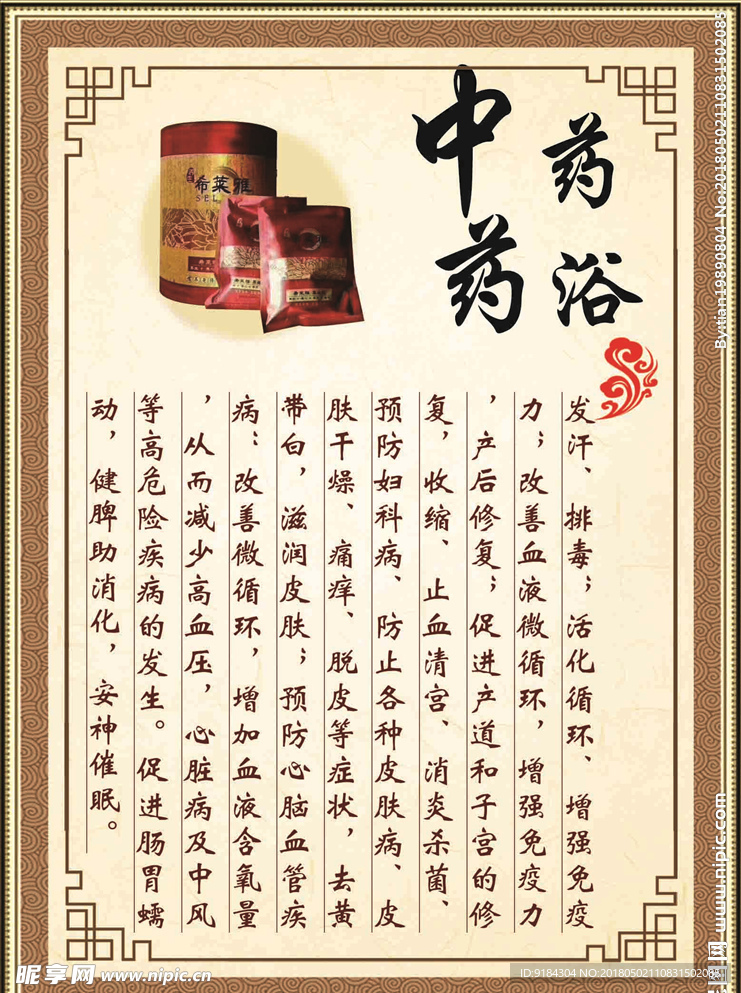 中药
药浴
希莱雅
SEL
发汗、排毒；活化循环、增强免疫
力；改善血液微循环，增强免疫力
，产后修复；促进产道和子宫的修
复，收缩、止血清宫、消炎杀菌、
预防妇科病、防止各种皮肤病、皮
肤干燥、痛痒、脱皮等症状，去黄
带白，滋润皮肤；预防心脑血管疾
病：改善微循环，增加血液含氧量
，从而减少高血压，心脏病及中风
等高危险疾病的发生。促进肠胃蠕
动，健脾助消化，安神催眠。
By:tian19890804 No:20180502110831502085
www.nipic.com
昵享网 www.nipic.cn
ID:9184304 NO:20180502110831502085